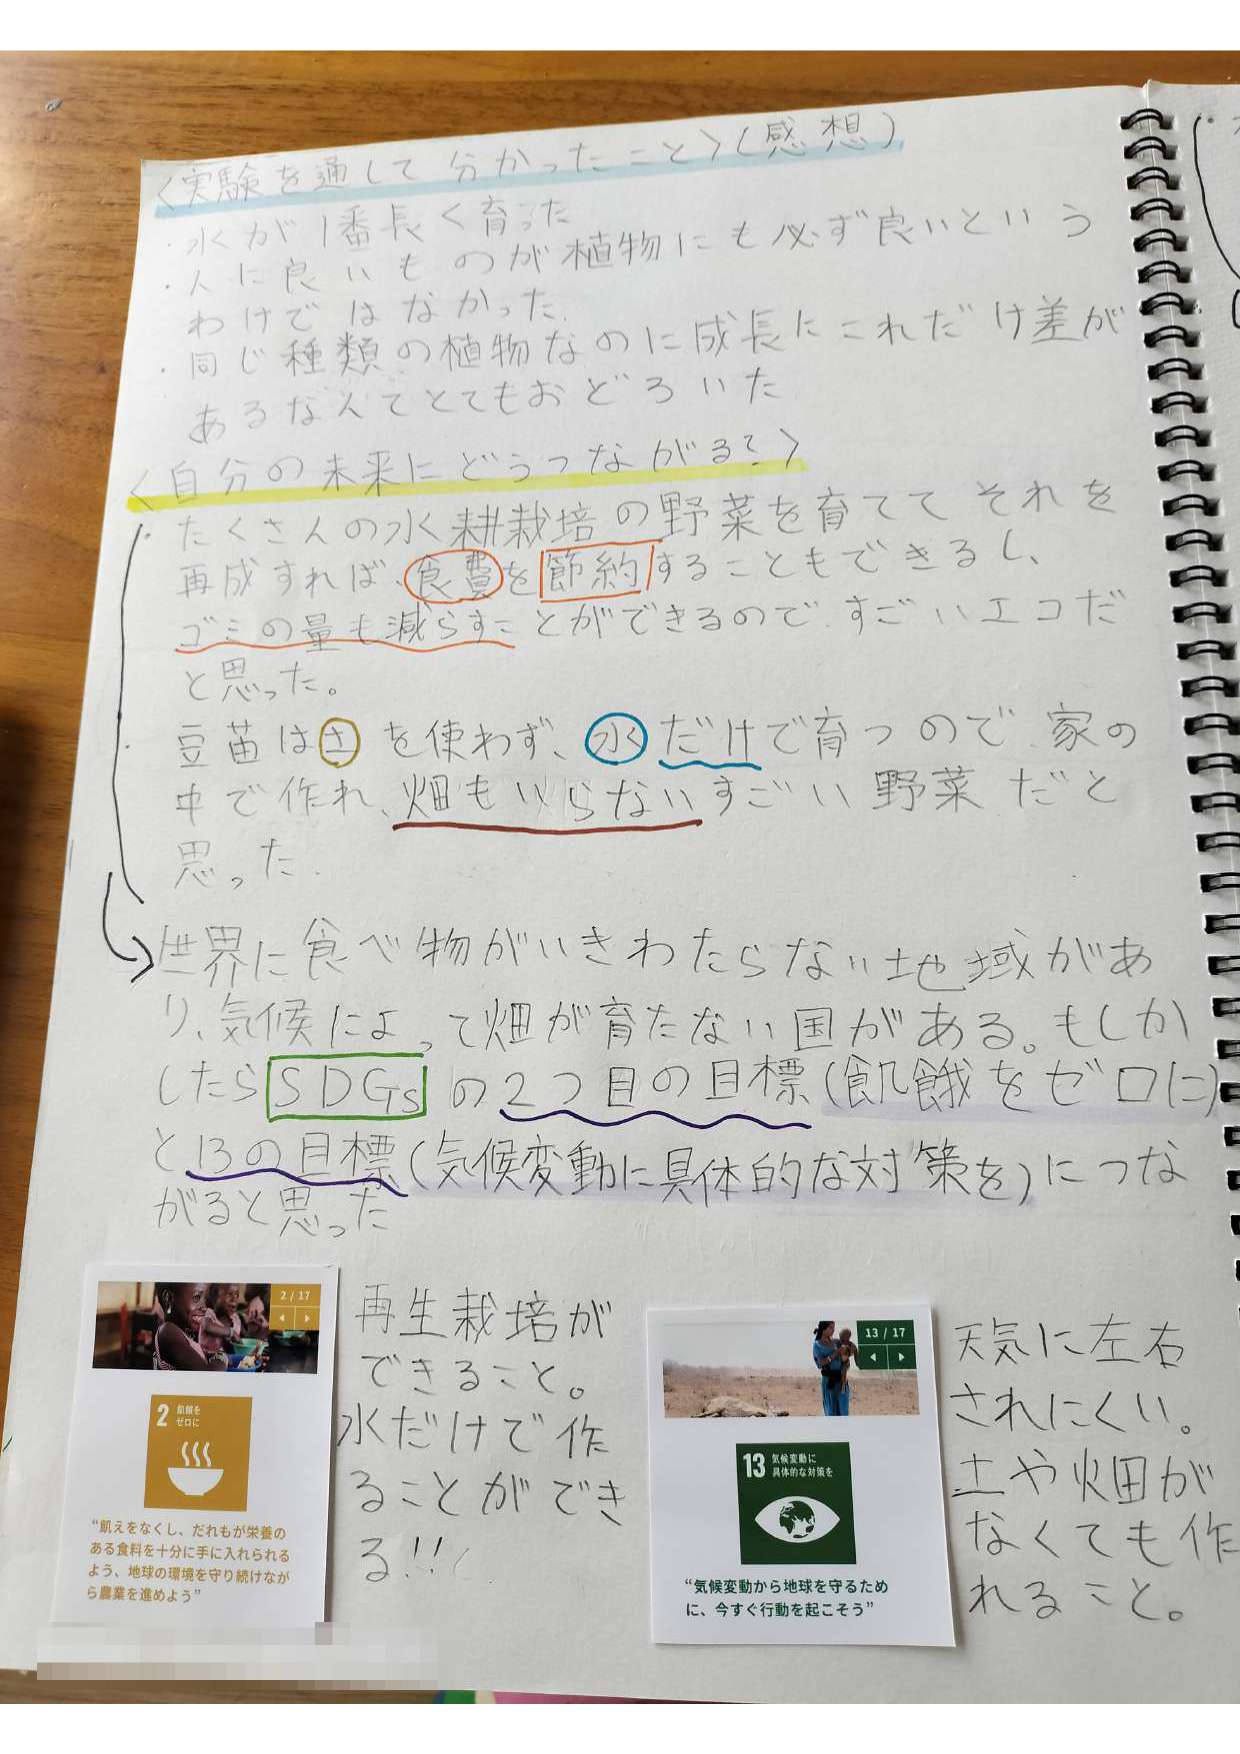 <実験を通して分かったこと>(感想)
・水が1番長く育った
・人に良いものが植物にも必ず良いという
わけではなかった.
・同じ種類の植物なのに成長にこれだけ差が
あるなんてとてもおどろいた
<自分の未来にどうつながる?>
・たくさんの水耕栽培の野菜を育ててそれを
再成すれば、食費を節約することもできるし、
ゴミの量も減らすことができるので.すごいエコだ
と思った。
・豆苗は土を使わず、水だけで育つので家の
中で作れ、畑もいらないすごい野菜だと
思った.
世界に食べ物がいきわたらない地域があ
り、気候によって畑が育たない国がある。もしか
したらSDGsの2つ目の目標(飢餓をゼロに)
と13の目標(気候変動に具体的な対策を)につな
がると思った
2 / 17
2 飢餓を
ゼロに
“飢えをなくし、だれもが栄養の
ある食料を十分に手に入れられる
よう、地球の環境を守り続けなが
ら農業を進めよう”
再生栽培が
できること。
水だけで作
ることができ
る!!
13 / 17
13 気候変動に
具体的な対策を
“気候変動から地球を守るため
に、今すぐ行動を起こそう”
天気に左右
されにくい。
土や畑が
なくても作
れること。